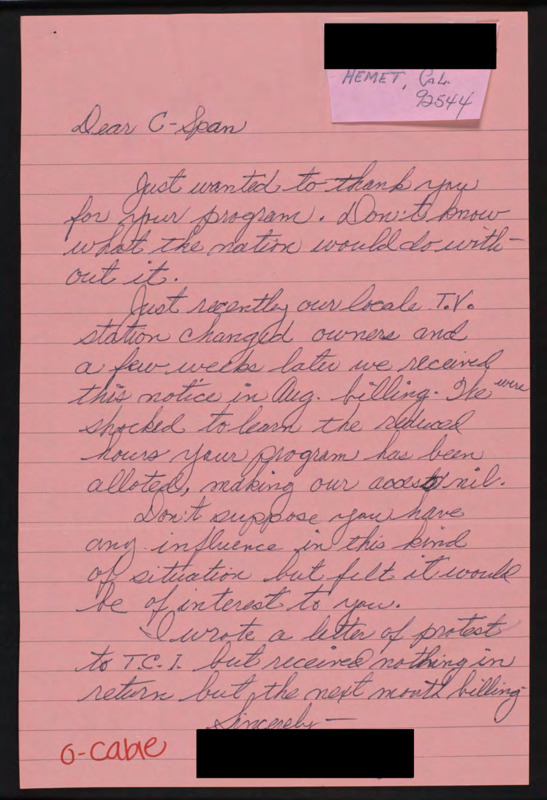 HEMET, Cal.
92544
Dear C-Span
Just wanted to thank you
for your program. Don't know
what the nation would do with-
out it.
Just recently our locale T.V.
station changed owners and
a few weeks later we received
this notice in Aug. billing. We were
shocked to learn the reduced
hours your program has been
alloted, making our access nil.
Don't suppose you have
any influence in this kind
of situation but felt it would
be of interest to you.
I wrote a letter of protest
to T.C.I. but received nothing in
return but the next month billing
Sincerely —
G-cable